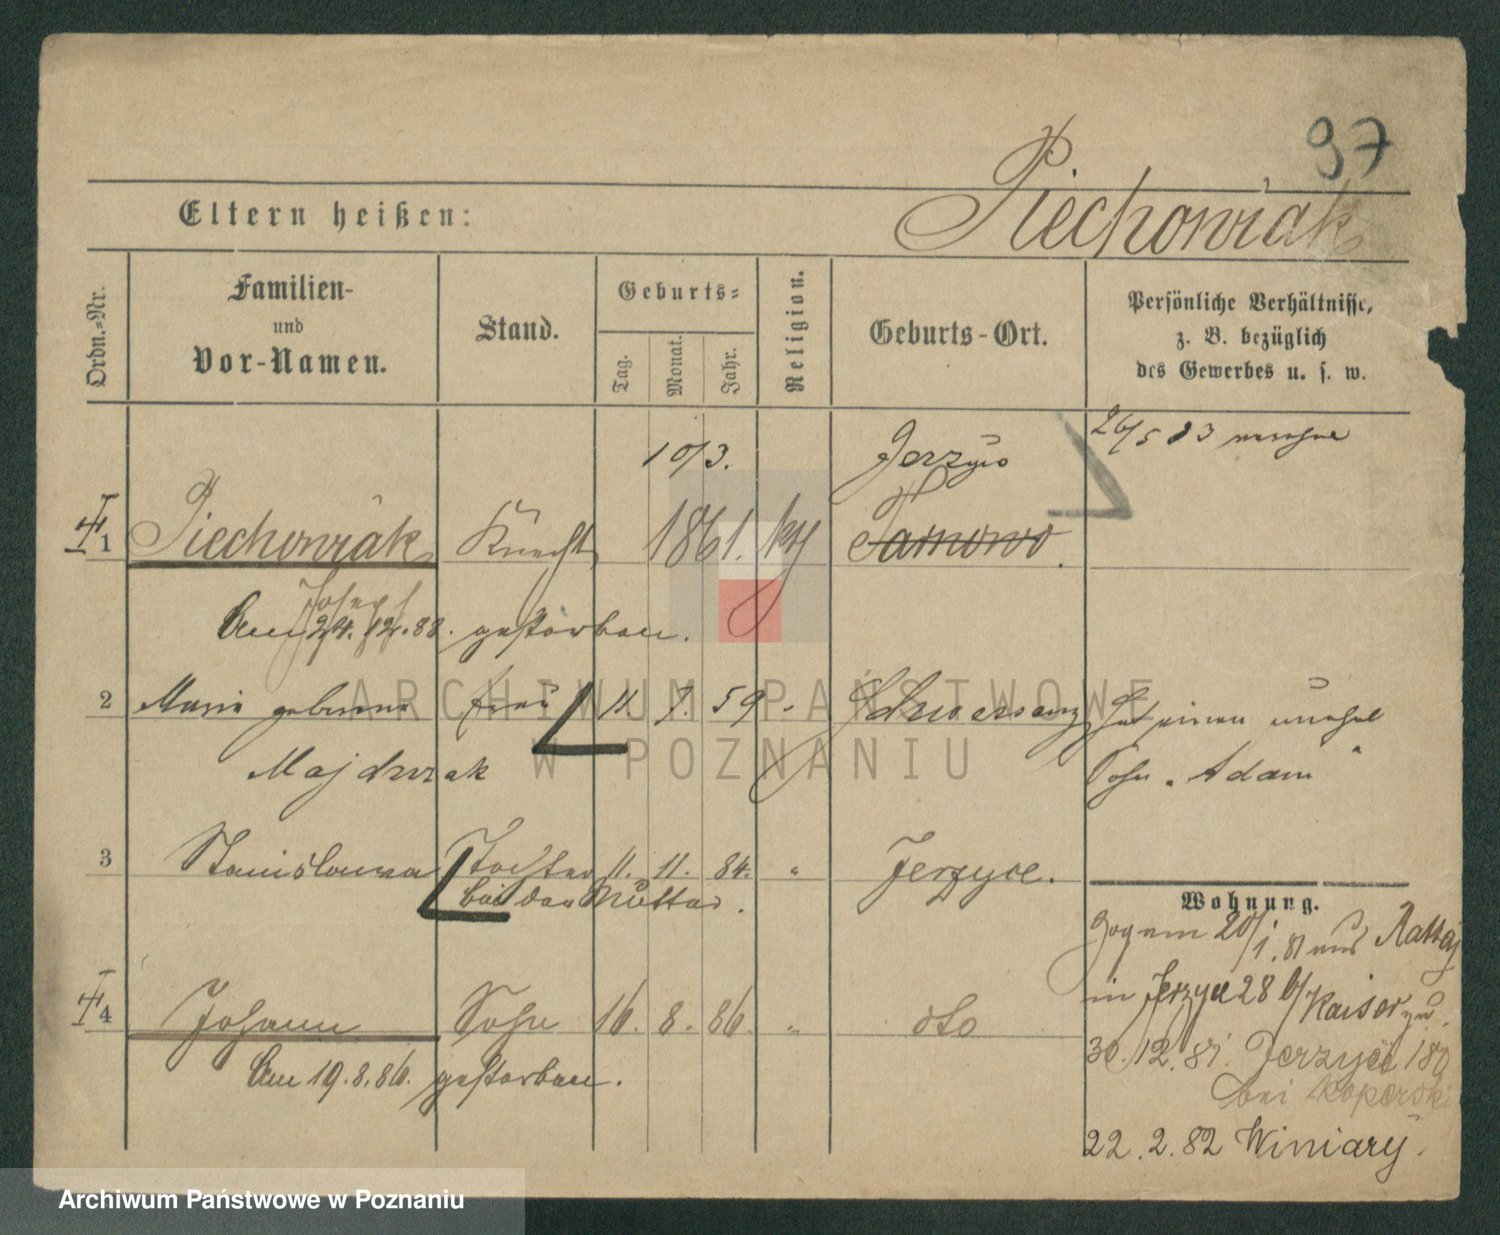 97
Piechowiak
Eltern heißen:
Ordn.-Nr.
Familien-
und
Vor-Namen.
Stand.
Geburts-
Tag.
Monat.
Jahr.
Religion.
Geburts-Ort.
Persönliche Verhältnisse,
z. B. bezüglich
des Gewerbes u. s. w.
26/5 83
10/3. Jerzyce
1 Piechowiak Knecht 1861. Tarnowo.
Joseph
Am 24. 12. 88. gestorben.
2 Maria geborene Frau 11. 7. 59 Schwersenz hat einen unehel
Majchrzak Sohn „Adam"
3 Stanislawa Tochter 11. 11. 84. " Jerzyce.
bei der Mutter.
Wohnung.
Zog am 20/1. 81 aus Rattaj
in Jerzyce 28 b/Kaiser zu.
4 Johann Sohn 16. 8. 86. " dto
30. 12. 81. Jerzyce 180
Am 19. 8. 86. gestorben.
bei Koperski
22. 2. 82 Winiary.
ARCHIWUM PAŃSTWOWE
W POZNANIU
Archiwum Państwowe w Poznaniu